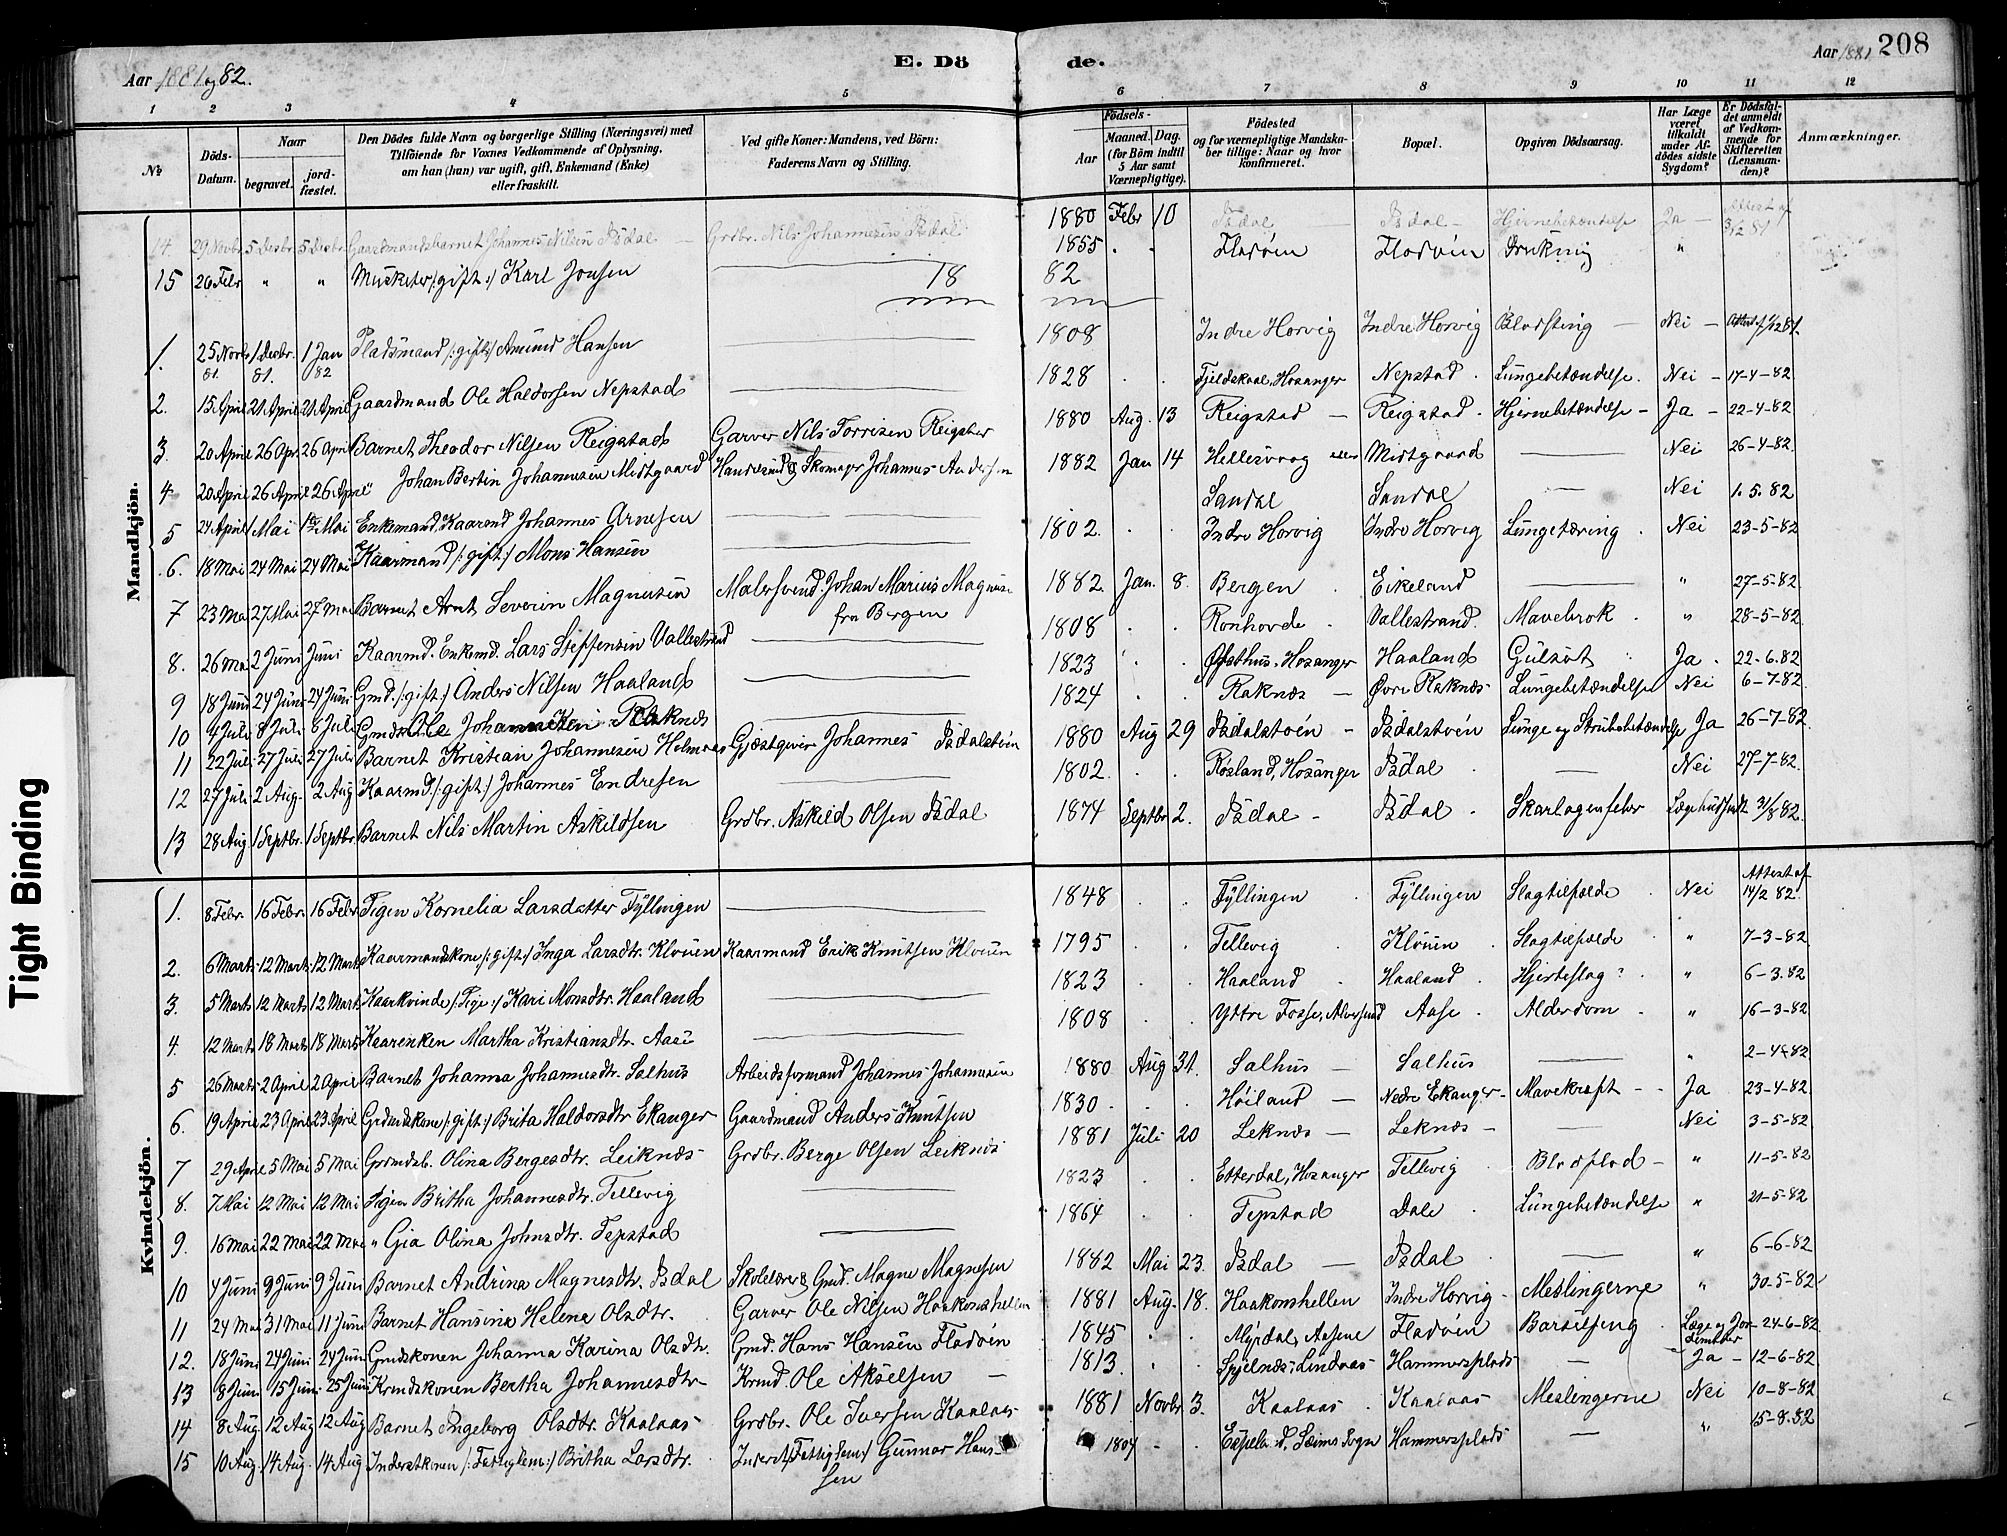 Aar 1881 og 82.
E. Dö de.
Aar 1881 208
1 2 3 4 5 6 7 8 9 10 11 12
№
Döds-Datum.
Naar
begravet.
jord-fæstet.
Den Dödes fulde Navn og borgerlige Stilling (Næringsvei) med
Tilföiende for Voxnes Vedkommende af Oplysning,
om han (hun) var ugift, gift, Enkemand (Enke)
eller fraskilt.
Ved gifte Koner: Mandens, ved Börn:
Faderens Navn og Stilling.
Födsels-
Aar
Maaned. Dag.
(for Börn indtil
5 Aar samt
Værnepligtige).
Födested
og for værnepligtige Mandska-
ber tillige: Naar og hvor
konfirmeret.
Bopæl.
Opgiven Dödsaarsag.
Har Læge
været
tilkaldt
under Af-
dödes sidste
Sygdom?
Er Dödsfal-
det anmeldt
af Vedkom-
mende for
Skifteretten
(Lensman-
den)?
Anmærkninger.
Mandkjön.
14 29 Novbr 5 Decbr 5 Decbr Gaardmandsbarnet Johannes Nilsen Isdal Grdbr. Nils Johannesen Isdal 1880 Febr 10 Isdal Isdal Hjernebetændelse Ja Attest af 3/12 81
15 26 Febr " " Musketer /:gift:/ Karl Jonsen 1855 Fladøen Fladøen Drukning "
18 82
1. 25 Novbr 81. 1 Decbr. 81. 1 Jan 82 Pladsmand /:gift:/ Amund Hansen 1808 Indre Horvig Indre Horvig Blodsting Nei Attest af 1/12 81.
2. 15 April 21 April 21 April Gaardmand Ole Haldorsen Nepstad 1828 Fjeldskaal, Hosanger Nepstad Lungebetændelse. Nei 17-4-82
3. 20 April 26 Apr. 26 April Barnet Theodor Nilsen Reigstad Garver Nils Torrisen Reigstad 1880 Aug. 13 Reigstad Reigstad Hjernebetændelse Ja 22-4-82
4. 20 April 26 April 26 April " Johan Bertin Johannesen Midtgaard Skomager Johannes Andersen 1882 Jan 14 Hellesvaag Midtgaard Nei 26-4-82
5 24 April 1 Mai 1 Mai Enkemand, Kaarmd Johannes Arnesen Sandal Sandal Nei 1.5.82
6. 18 Mai 24 Mai 24 Mai Kaarmand /:gift:/ Mons Hansen 1802. Indre Horvig Indre Horvig Lungetæring Nei 23-5-82
7 23 Mai 27 Mai 27 Mai Barnet Arnt Severin Magnusen Malersvend Johan Marius Magnus.
fra Bergen 1882. Jan. 8. Bergen Eikeland " 27-5-82
8. 26 Mai 2 Juni Juni Kaarmd. Enkemd. Lars Steffensen Vallestrand 1808 Ronhovde Vallestrand. Mavebrok " 28-5-82
9 18 Juni 24 Juni 24 Juni Gmd. /:gift:/ Anders Nilsen Haaland 1823 Østhus, Hosanger Haaland Gulsot Ja 22-6.82
10 4 Juli 8 Juli 8 Juli Gmd Ole Johannesen Raknes 1824 Raknes Øvre Raknes Lungebetændelse Nei 6-7-82
11 22 Juli 27 Juli 27 Juli Barnet Kristian Johannesen Helmers Gjæstgiver Johannes Isdalstøen 1880 Aug 29 Isdalstøen Isdalstøen Lunge og Strubebetændelse Ja 26-7-82
12 27 Juli 2 Aug. 2 Aug Kaarmd. /:gift:/ Johannes Endresen 1802. Røsland, Hosanger Isdal Nei 27-7-82.
13 28 Aug 1 Septbr. 1 Septbr. Barnet Nils Martin Askildsen Grdbr. Askild Olsen Isdal 1874 Septbr 2. Isdal Isdal Skarlagenfeber 31/8 82.
Kvindekjön.
1. 8 Febr. 16 Febr. 16 Febr Pigen Kornelia Larsdatter Fyllingen 1848 Fyllingen Fyllingen Slagtilfælde Nei Attest af 14/2 82.
2. 6 Marts 12 Marts 12 Marts Kaarmandskone /:gift:/ Inga Larsdtr. Kloven Kaarmand Erik Knutsen Kloven 1795 Tellevig Kloven Slagtilfælde " 7-3-82
3. 5 Marts 12 Marts 12 Marts Kaarkvinde /:Pige:/ Kari Monsdtr. Haaland 1823 Haaland Haaland Hjerteslag? " 6-3.82
4. 12 Marts 18 Marts 18 Marts Kaarenken Martha Kristiansdtr. Aase 1808 Yttre Fosse, Alversund Aase Alderdom " 16-3-82
5 26 Marts 2 April 2 April Barnet Johanna Johannesdtr. Salhus Arbeidsformand Johannes Johannesen 1880 Aug 31. Salhus Salhus " 2-4-82
6. 19 April 23 April 23 April Grdmdskone /:gift:/ Brita Haldorsdtr Ekanger Gaardmand Anders Knutsen 1830 Høiland Nedre Ekanger Mavekræft Ja 23-4-82
7 29 April 5 Mai 5 Mai Grdmdsb. Olina Bergesdtr. Leiknes Grdbr. Berge Olsen Leiknes 1881 Juli 20 Leknes Leknes Nei 3-5-82
8. 7 Mai 12 Mai 12 Mai Pigen Britha Johannesdtr. Tellevig 1823 Etterdal, Hosanger Tellevig Blodflod " 11-5-82
9. 16 Mai 22 Mai 22 Mai " Gia Olina Johnsdtr. Tepstad 1864 Tepstad Dale Lungebetændelse " 21-5-82
10 4 Juni 9 Juni 9 Juni Barnet Andrina Magnesdtr. Isdal Skolelærer & Gmd. Magne Magnesen 1882 Mai 23. Isdal Isdal " 6-6-82
11 24 Mai 31 Mai 11 Juni Barnet Hansine Helene Olsdtr. Garver Ole Nilsen Haakonshellen 1881 Aug. 18. Haakonshellen Indre Horvig Meslingerne " 30-5-82
12. 18 Juni 24 Juni 24 Juni Gmdskonen Johanna Karina Olsdtr. Gmd. Hans Hansen Fladøen 1845 Myrdal, Aasene Fladøen Barselseng Læge og Jordemoder 24-6-82
13 8 Juni 15 Juni 25 Juni Krmdskonen Bertha Johannesdtr Krmd. Ole Akselsen 1813 Spjelnes, Lindaas Hammersplads Ja 12-6-82
14 8 Aug 12 Aug 12 Aug Barnet Ingeborg Olsdtr. Kaalaas Grdbr. Ole Iversen Kaalaas 1881 Novbr 3. Kaalaas Kaalaas Meslingerne Nei 10-8-82
15 10 Aug. 14 Aug. 14 Aug Inderstkonen /:Fattiglem:/ Britha Larsdtr. Inderst /:Fattiglem:/ Gunnar Han-
sen 1804 Seims Sogn Hammersplads " 15-8.82
Tight Binding